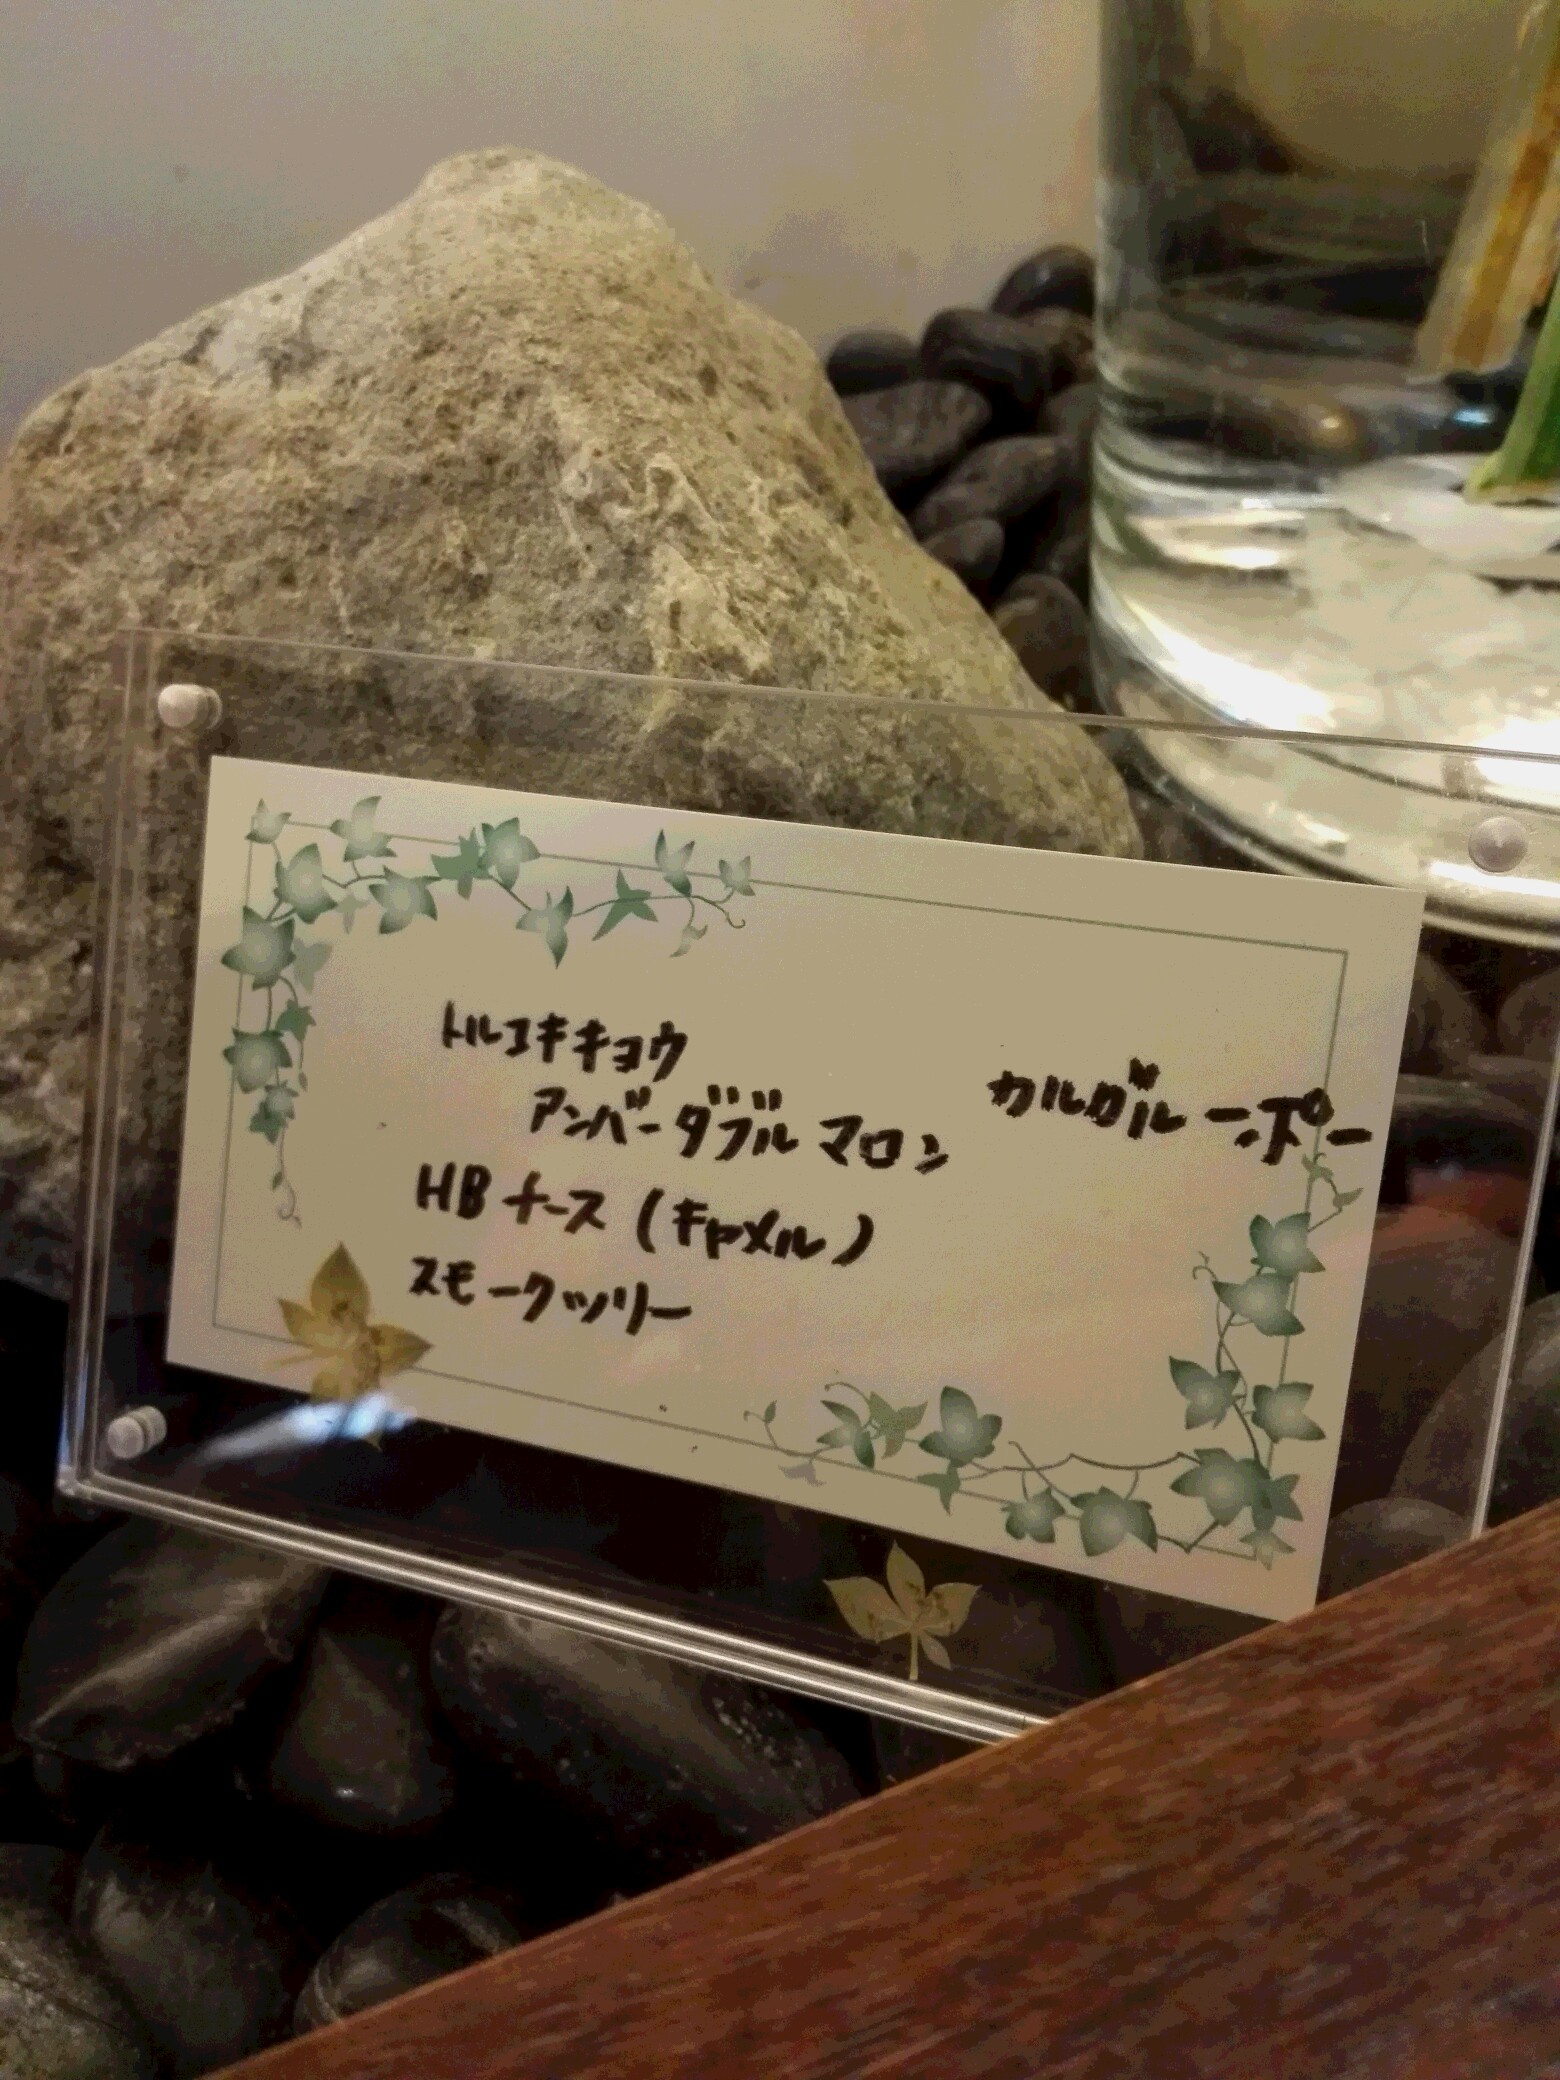 トルコキキョウ
アンバーダブル マロン
HB ナース (キャメル)
スモークツリー
カルガルーンポー